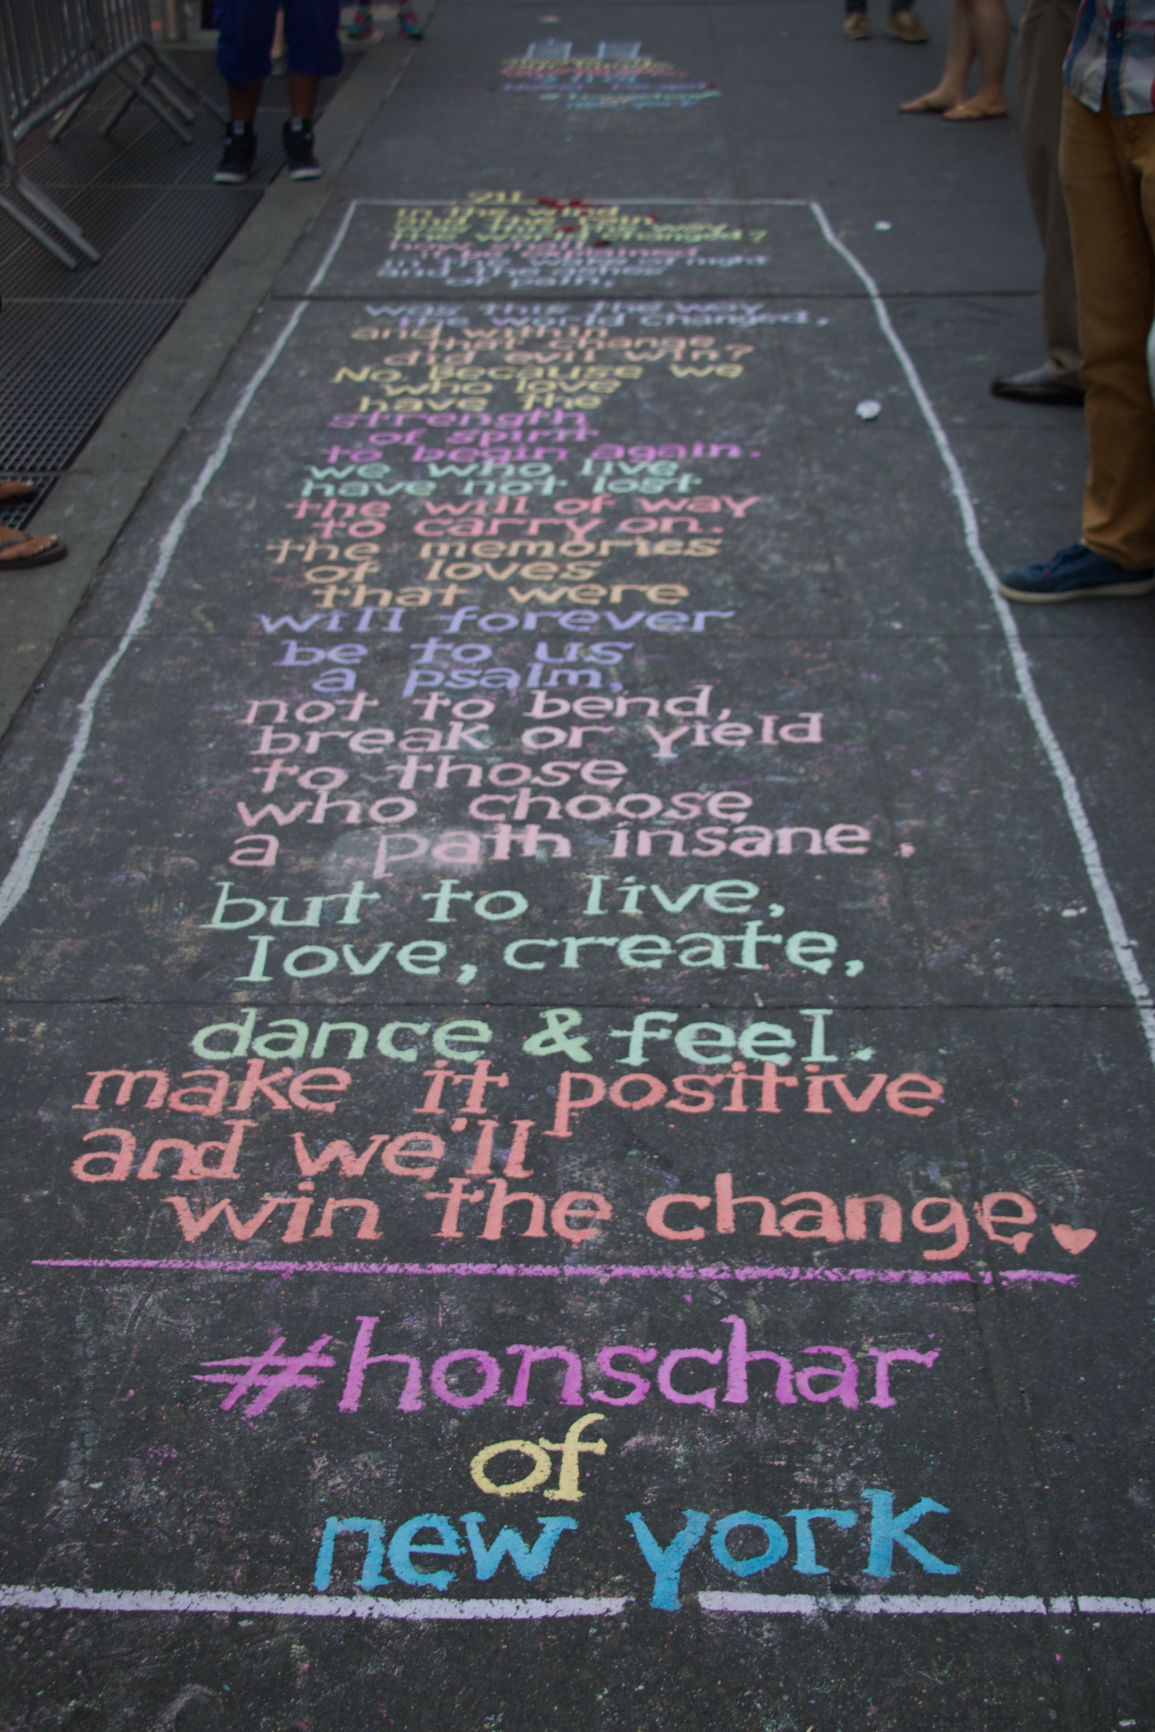 911
in the wind
and the rain
was this the way
the world changed?
how shall
it be explained
and the ashes
or pain,
was this the way
the world changed,
and within
that change
did evil win?
No, Because we
who love
have the
strength
of spirit
to begin again.
we who live,
have not lost
the will of way
to carry on.
the memories
of loves
that were
will forever
be to us
a psalm,
not to bend,
break or yield
to those
who choose
a path insane,
but to live,
love, create,
dance & feel.
make it positive
and we'll
win the change.
#honschar
of
new york